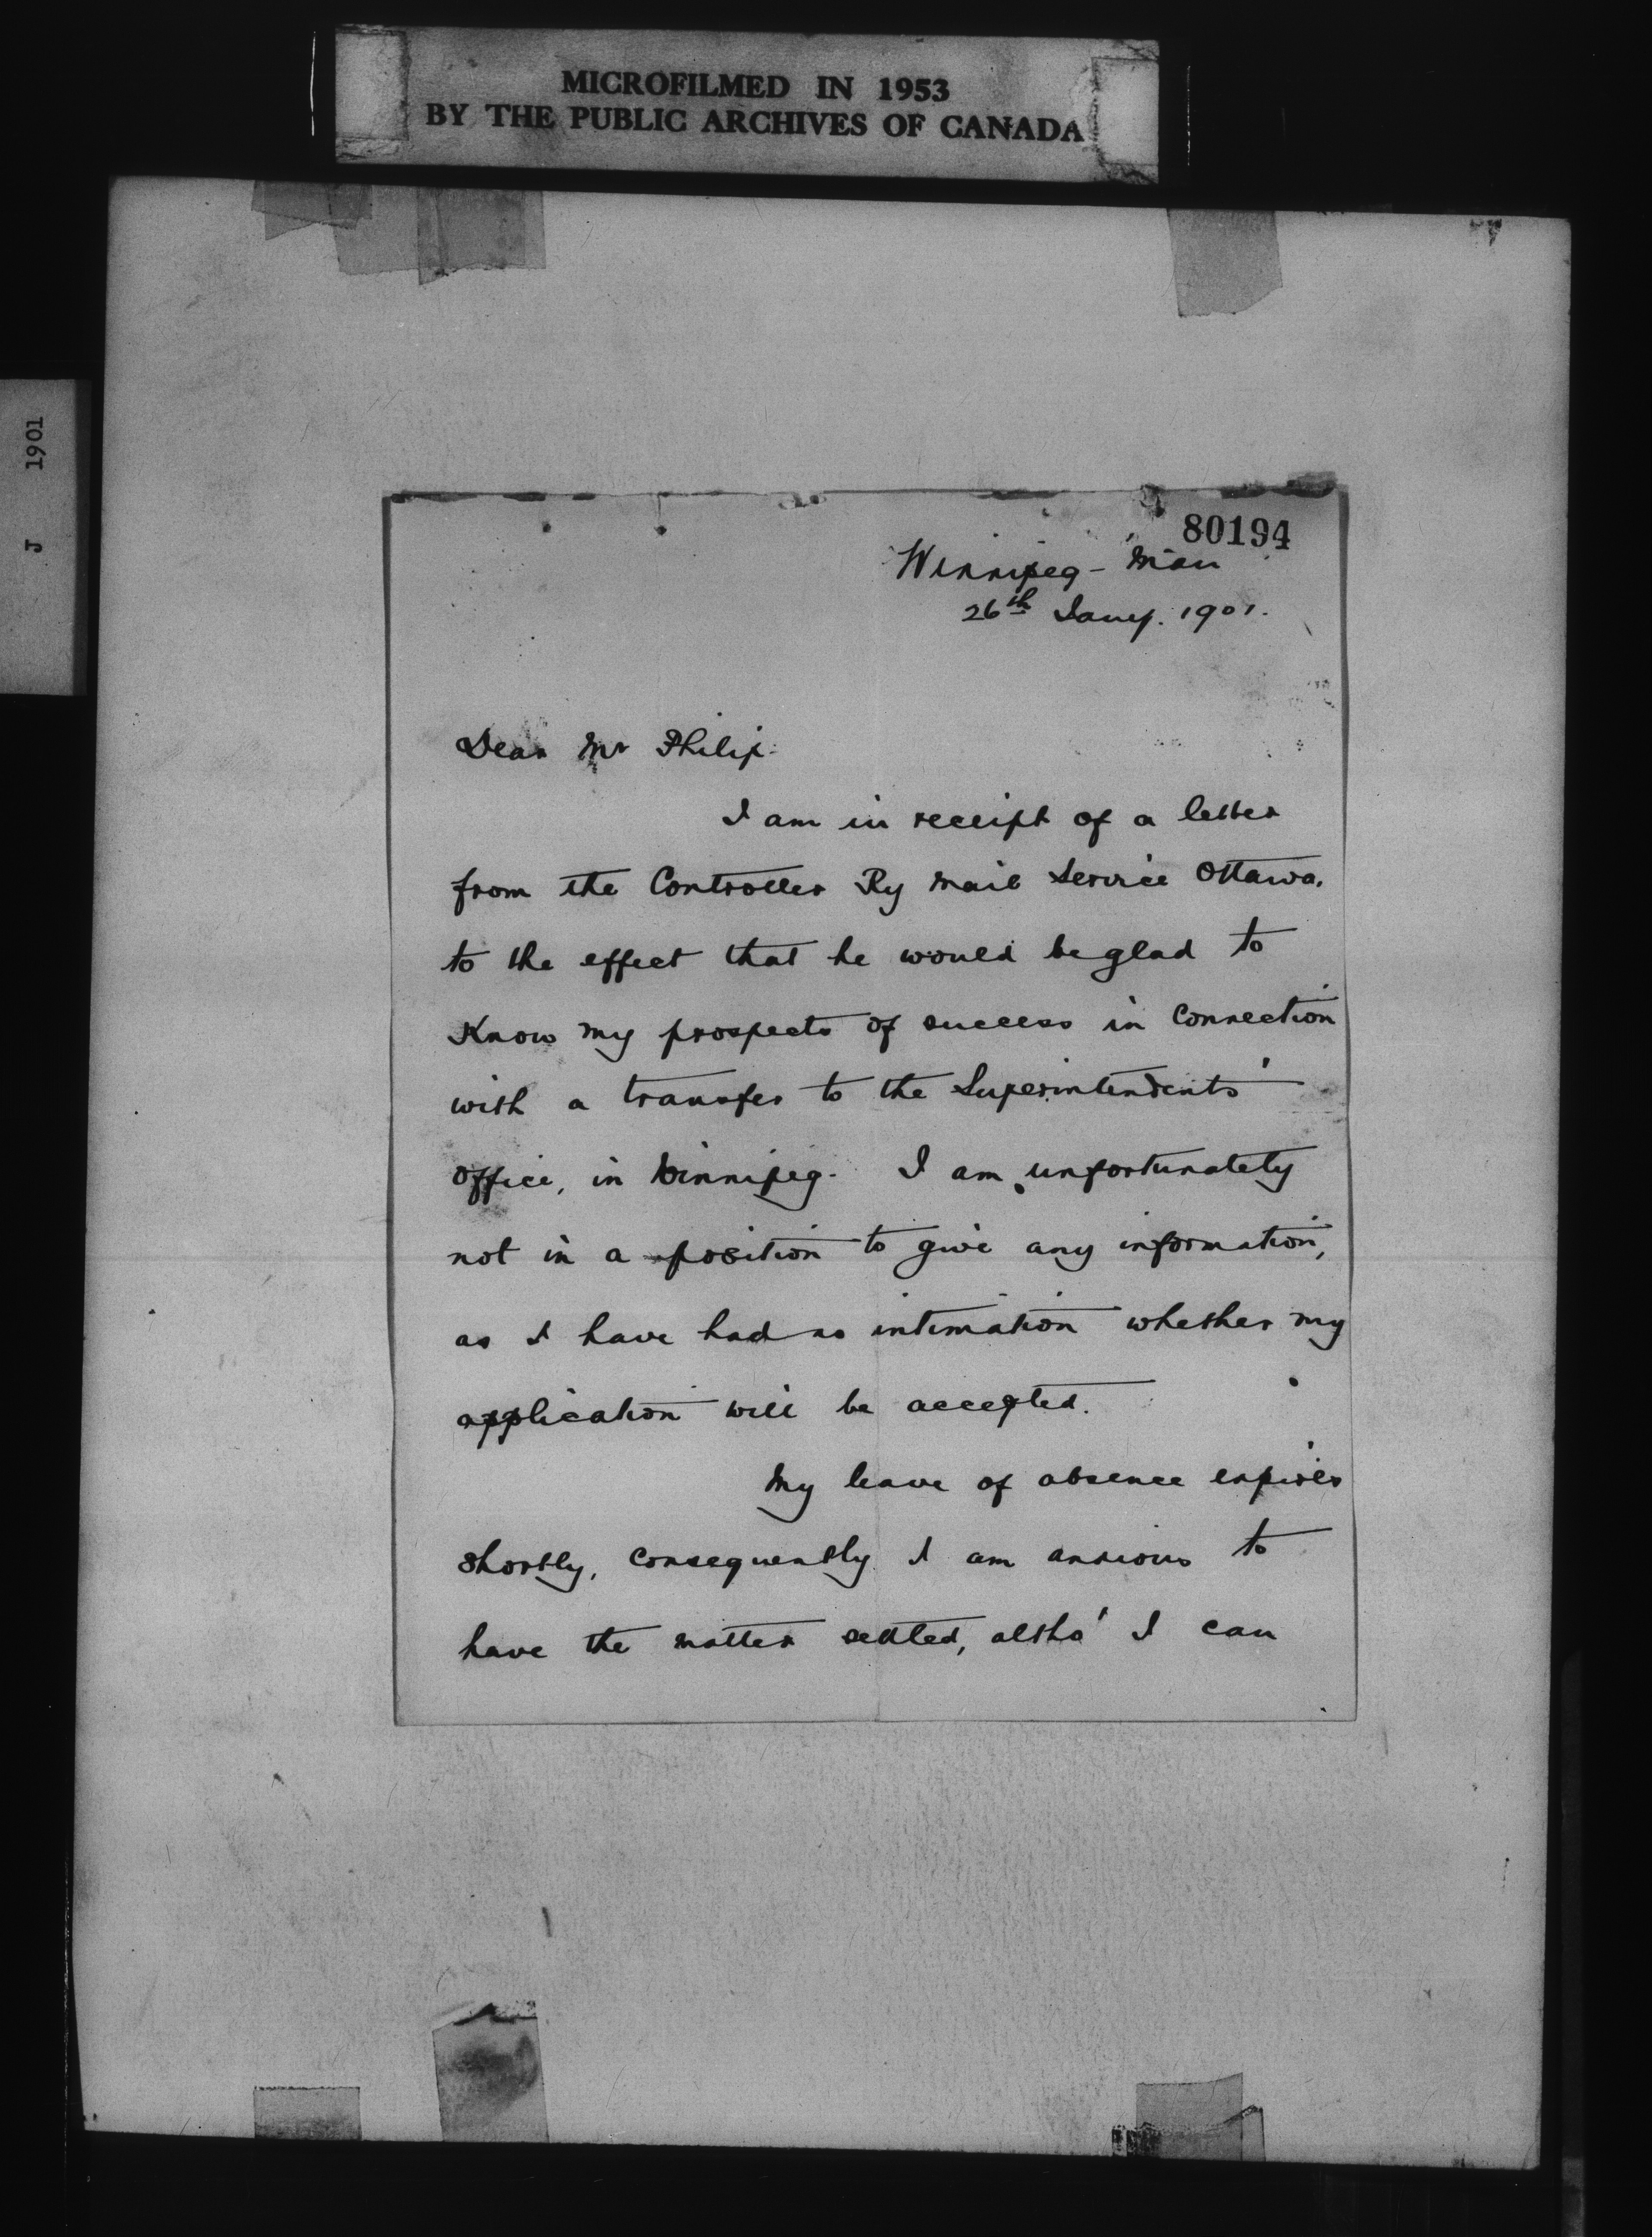 MICROFILMED IN 1953
BY THE PUBLIC ARCHIVES OF CANADA
J 1901
80194
Winnipeg - Man
26th Jany. 1901.
Dear Mr Philip.
I am in receipt of a letter
from the Controller Ry Mail Service Ottawa,
to the effect that he would be glad to
Know my prospects of success in connection
with a transfer to the Superintendents'
office, in Winnipeg. I am unfortunately
not in a position to give any information,
as I have had no intimation whether my
application will be accepted.
My leave of absence expires
shortly, consequently I am anxious to
have the matter settled, altho' I can